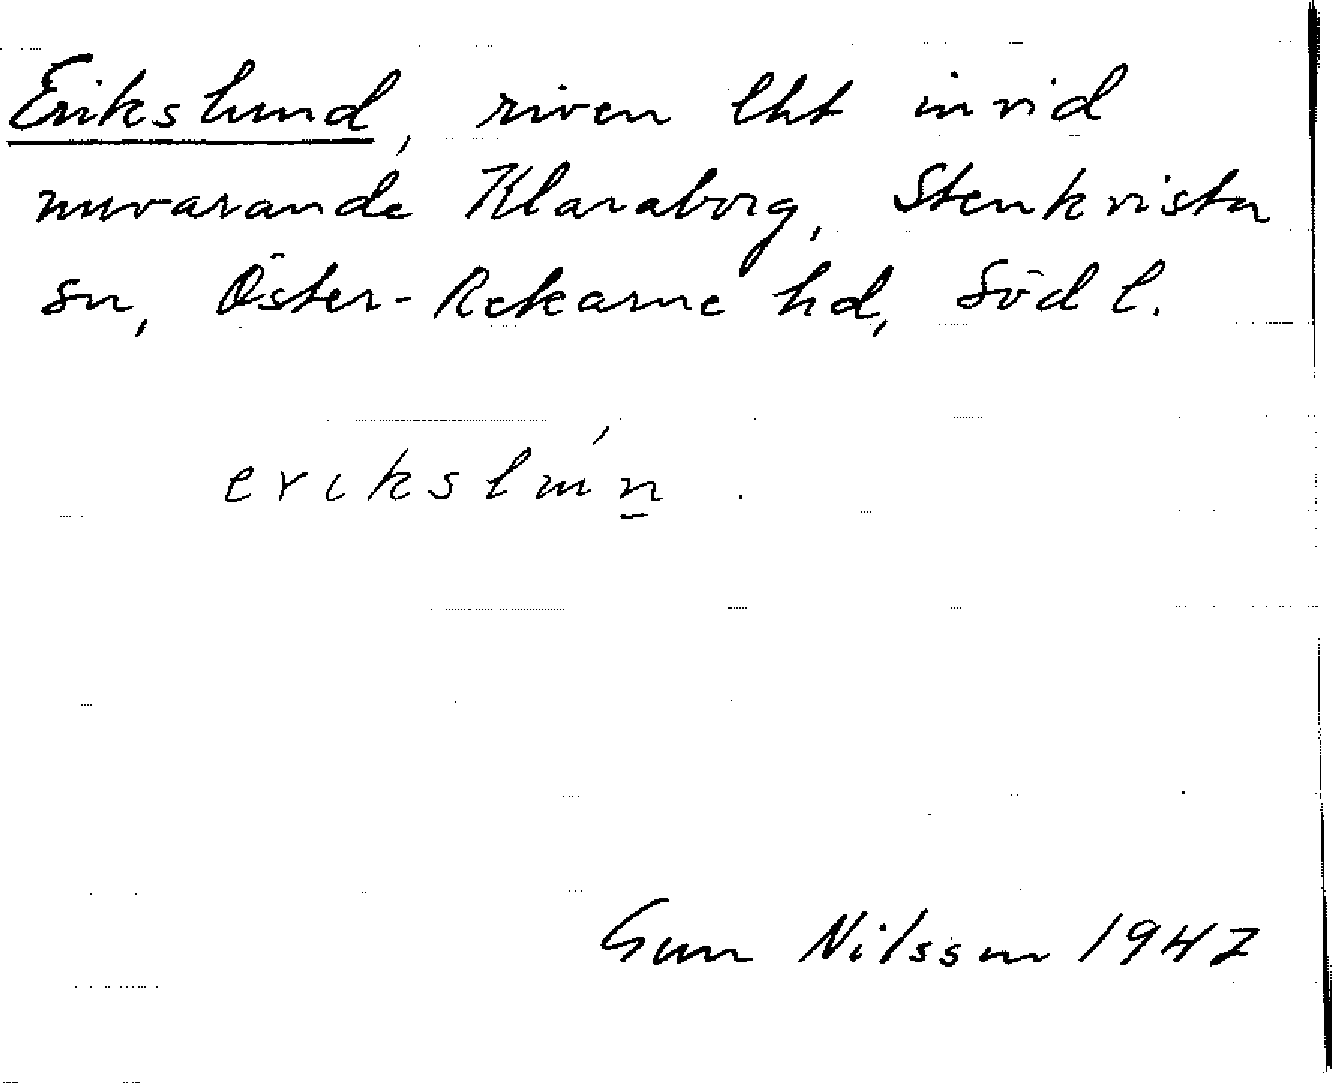 Erikslund, riven lht invid
nuvarande Klaraborg, Stenkvista
sn, Öster-Rekarne hd, Södl.
Gun Nilsson 1947